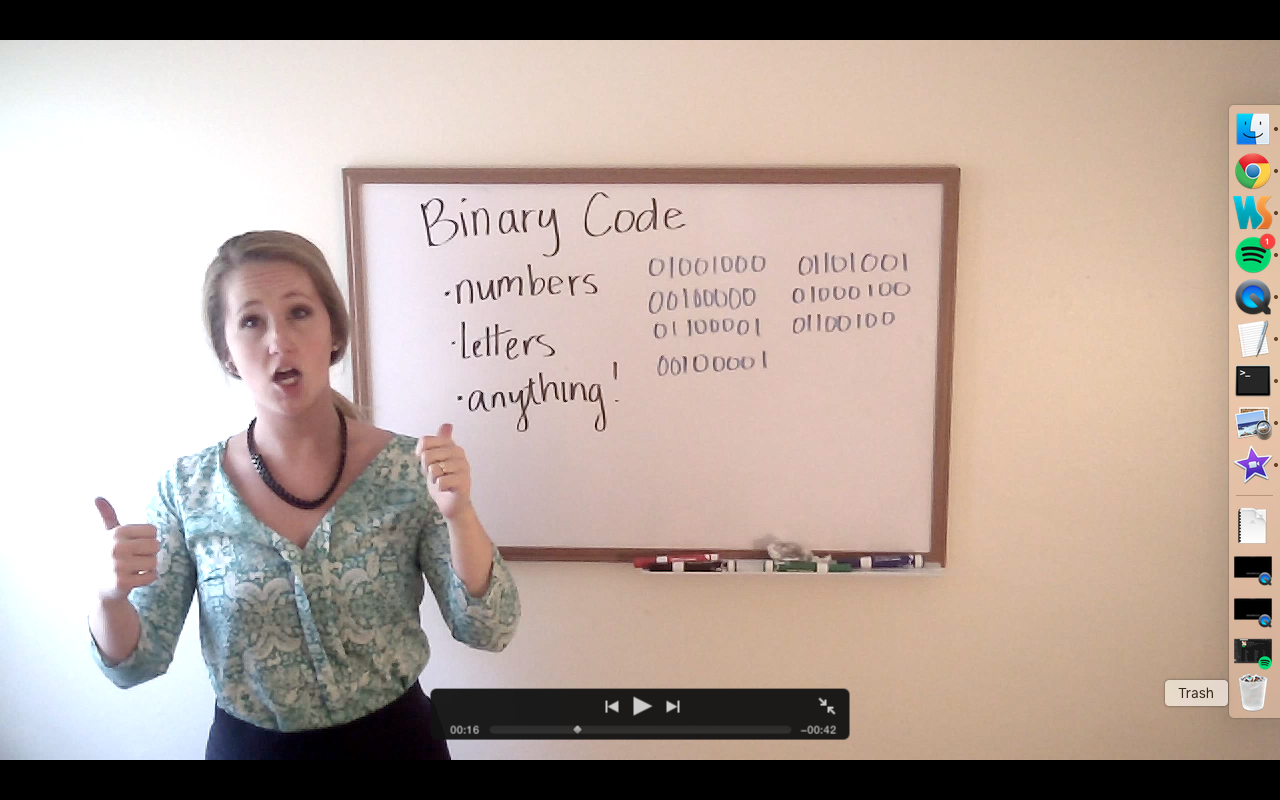 Binary Code
·numbers
·letters
·anything!
01001000 01101001
00100000 01000100
01100001 01100100
00100001
WS
1
>_
Trash
00:16
−00:42